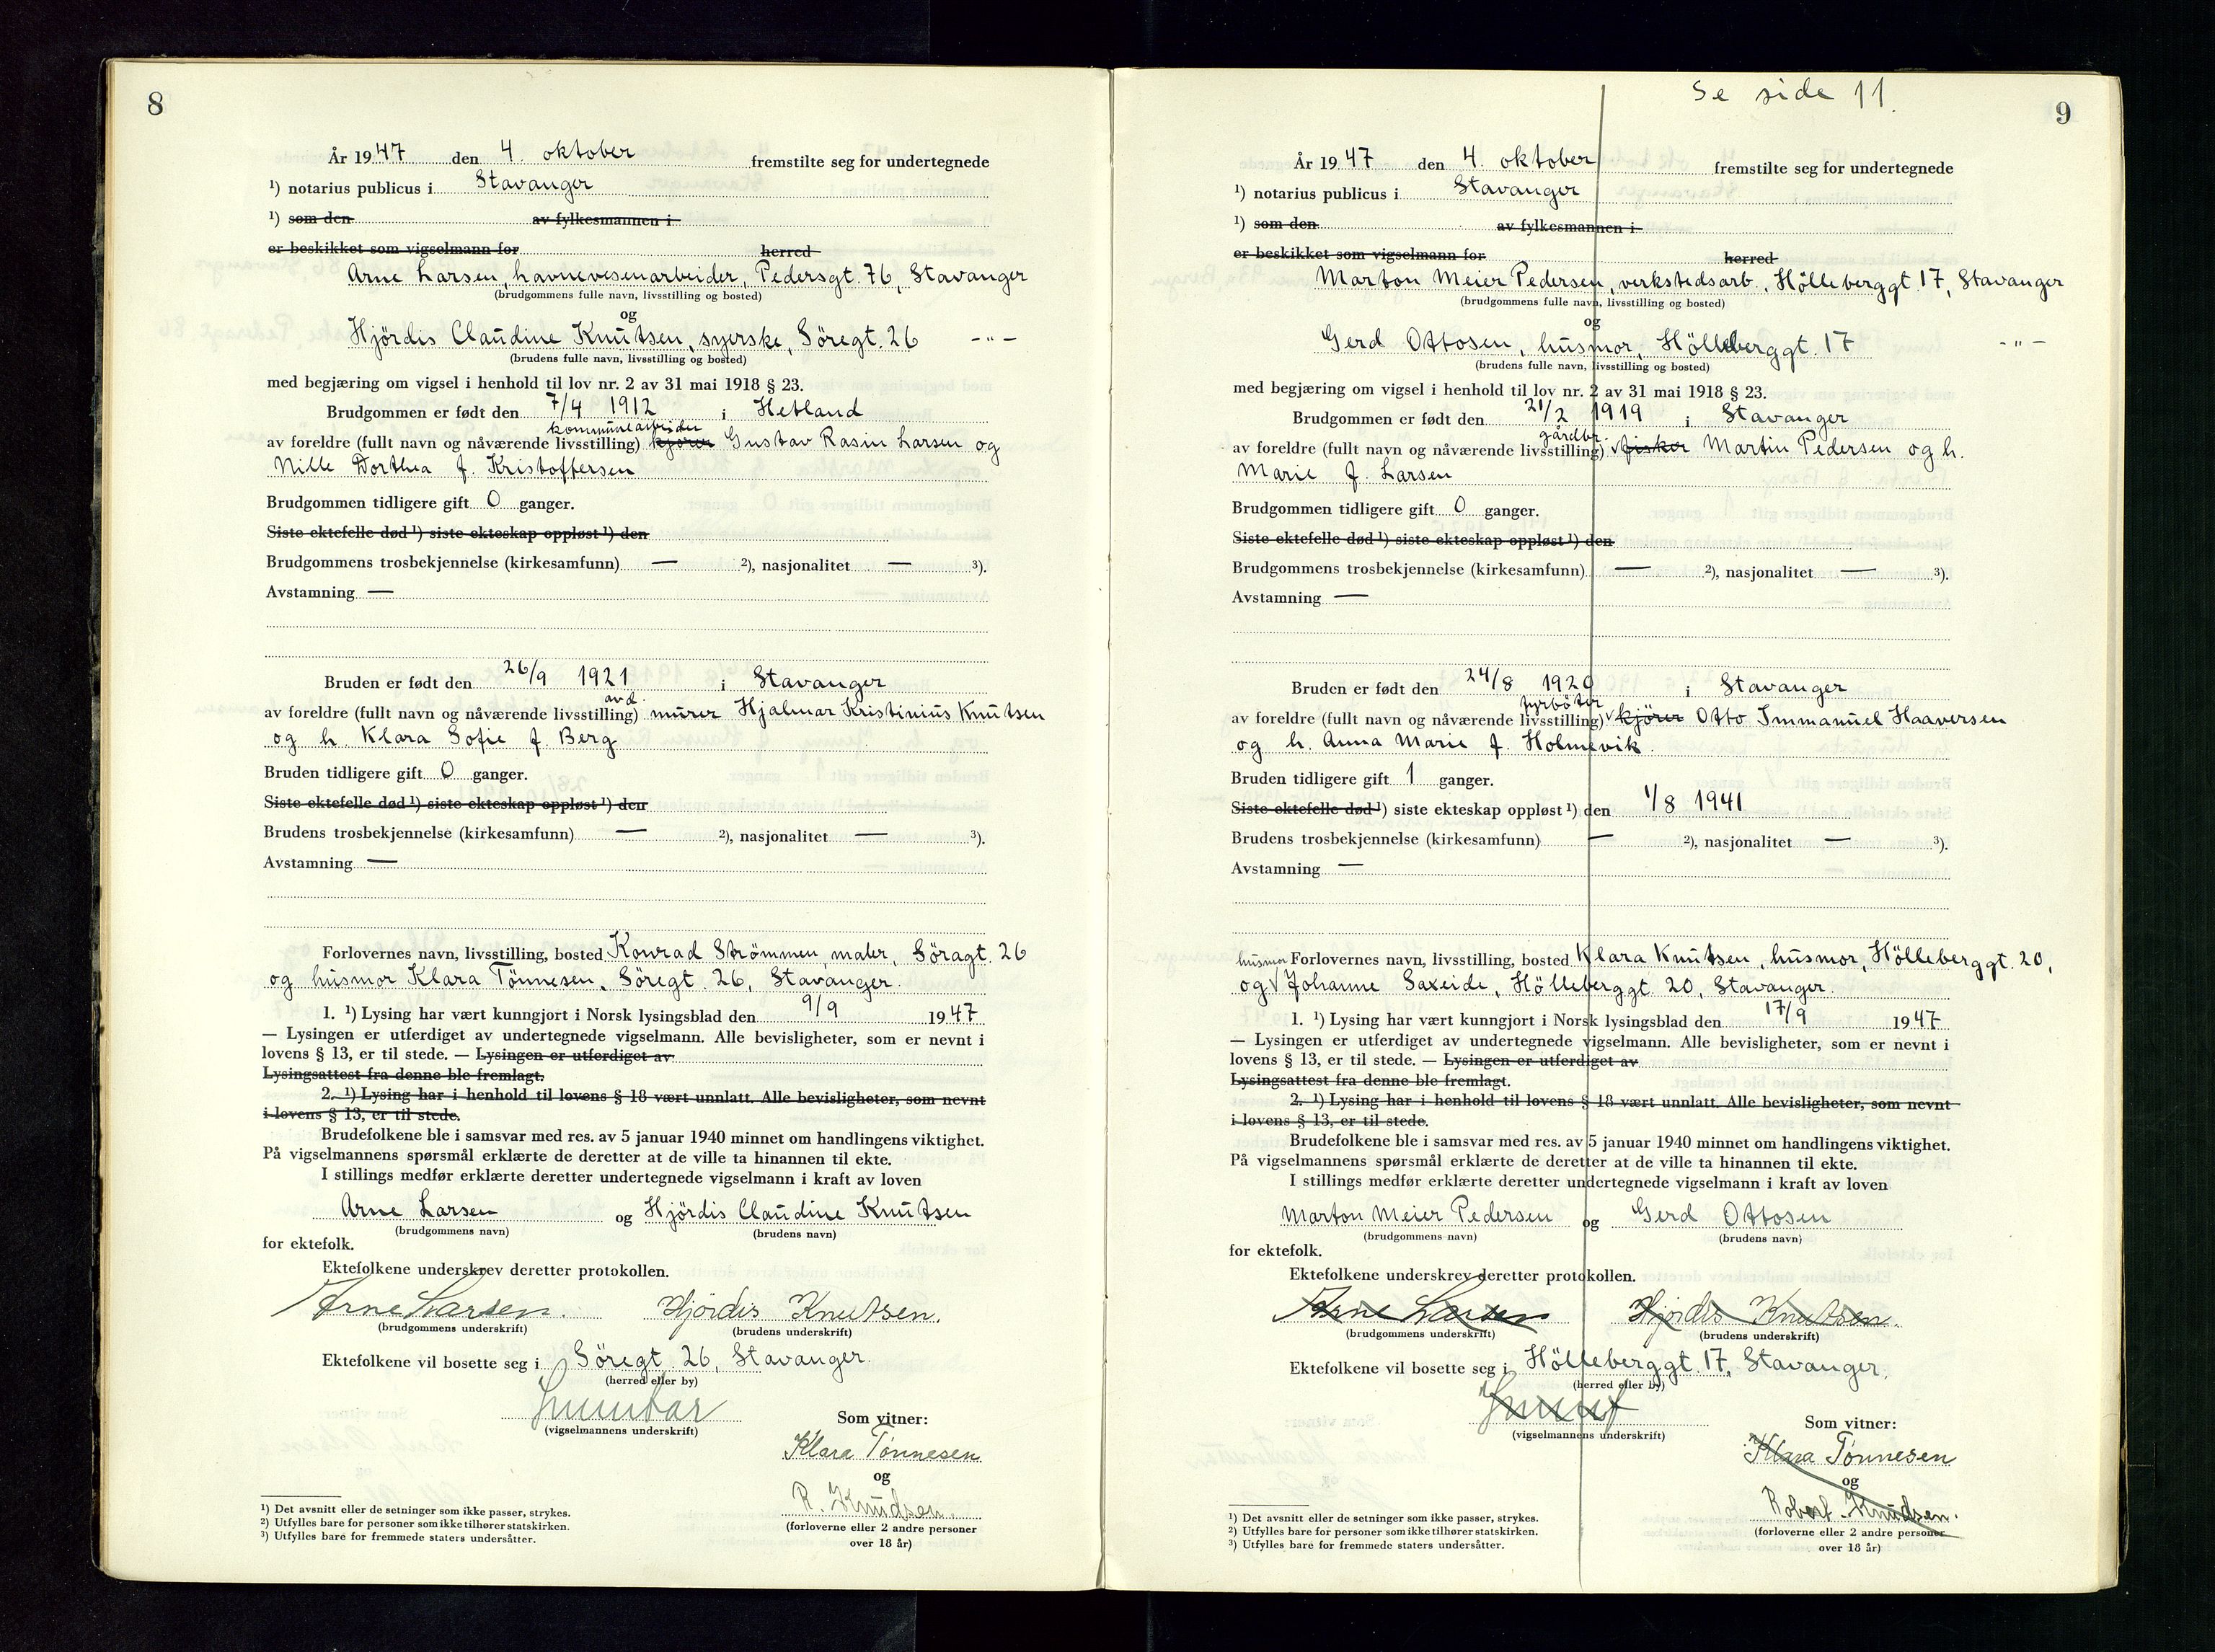 8
År 1947 den 4. oktober fremstilte seg for undertegnede
¹) notarius publicus i Stavanger
¹) som den av fylkesmannen i
er beskikket som vigselmann for herred
Arne Larsen, havnevesenarbeider, Pedersgt. 76, Stavanger
(brudgommens fulle navn, livsstilling og bosted)
og
Hjördis Claudine Knutsen, syerske, Söregt. 26 -"-
(brudens fulle navn, livsstilling og bosted)
med begjæring om vigsel i henhold til lov nr. 2 av 31 mai 1918 § 23.
Brudgommen er født den 7/4 1912 i Hetland
kommunearbeider
av foreldre (fullt navn og nåværende livsstilling) kjører Gustav Rasin Larsen og
Nille Dorthea f. Kristoffersen
Brudgommen tidligere gift 0 ganger.
Siste ektefelle død ¹) siste ekteskap oppløst ¹) den
Brudgommens trosbekjennelse (kirkesamfunn) — ²), nasjonalitet — ³).
Avstamning —
Bruden er født den 26/9 1921 i Stavanger
avd.
av foreldre (fullt navn og nåværende livsstilling) murer Hjalmar Kristinius Knutsen
og h. Klara Sofie f. Berg
Bruden tidligere gift 0 ganger.
Siste ektefelle død ¹) siste ekteskap oppløst ¹) den
Brudens trosbekjennelse (kirkesamfunn) — ²), nasjonalitet — ³).
Avstamning —
Forlovernes navn, livsstilling, bosted Konrad Strömmen, maler, Söragt. 26
og husmor Klara Tönnesen, Söregt. 26, Stavanger.
1. ¹) Lysing har vært kunngjort i Norsk lysingsblad den 9/9 1947
— Lysingen er utferdiget av undertegnede vigselmann. Alle bevisligheter, som er nevnt i
lovens § 13, er til stede. — Lysingen er utferdiget av
Lysingsattest fra denne ble fremlagt.
2. ¹) Lysing har i henhold til lovens § 18 vært unnlatt. Alle bevisligheter, som nevnt
i lovens § 13, er til stede.
Brudefolkene ble i samsvar med res. av 5 januar 1940 minnet om handlingens viktighet.
På vigselmannens spørsmål erklærte de deretter at de ville ta hinannen til ekte.
I stillings medfør erklærte deretter undertegnede vigselmann i kraft av loven
Arne Larsen og Hjördis Claudine Knutsen
(brudgommens navn) (brudens navn)
for ektefolk.
Ektefolkene underskrev deretter protokollen.
Arne Larsen. Hjördis Knutsen.
(brudgommens underskrift) (brudens underskrift)
Ektefolkene vil bosette seg i Söregt. 26, Stavanger.
(herred eller by)
(vigselmannens underskrift)
Som vitner:
Klara Tönnesen
og
R. Knudsen.
(forloverne eller 2 andre personer
over 18 år)
¹) Det avsnitt eller de setninger som ikke passer, strykes.
²) Utfylles bare for personer som ikke tilhører statskirken.
³) Utfylles bare for fremmede staters undersåtter.
Se side 11.
9
År 1947 den 4. oktober fremstilte seg for undertegnede
¹) notarius publicus i Stavanger
¹) som den av fylkesmannen i
er beskikket som vigselmann for herred
Marton Meier Pedersen, verkstedsarb., Hölleberggt. 17, Stavanger
(brudgommens fulle navn, livsstilling og bosted)
og
Gerd Ottosen, husmor, Hölleberggt. 17 -"-
(brudens fulle navn, livsstilling og bosted)
med begjæring om vigsel i henhold til lov nr. 2 av 31 mai 1918 § 23.
Brudgommen er født den 21/2 1919 i Stavanger
gårdbr.
av foreldre (fullt navn og nåværende livsstilling) fisker Martin Pedersen og h.
Marie f. Larsen
Brudgommen tidligere gift 0 ganger.
Siste ektefelle død ¹) siste ekteskap oppløst ¹) den
Brudgommens trosbekjennelse (kirkesamfunn) — ²), nasjonalitet — ³).
Avstamning —
Bruden er født den 24/8 1920 i Stavanger
fyrböter
av foreldre (fullt navn og nåværende livsstilling) kjörer Otto Immanuel Haaversen
og h. Anna Marie f. Holmevik.
Bruden tidligere gift 1 ganger.
Siste ektefelle død ¹) siste ekteskap oppløst ¹) den 1/8 1941
Brudens trosbekjennelse (kirkesamfunn) — ²), nasjonalitet — ³).
Avstamning —
Forlovernes navn, livsstilling, bosted Klara Knutsen, husmor, Hölleberggt. 20,
husmor
og Johanne Saxeide, Hölleberggt. 20, Stavanger.
1. ¹) Lysing har vært kunngjort i Norsk lysingsblad den 17/9 1947
— Lysingen er utferdiget av undertegnede vigselmann. Alle bevisligheter, som er nevnt i
lovens § 13, er til stede. — Lysingen er utferdiget av
Lysingsattest fra denne ble fremlagt.
2. ¹) Lysing har i henhold til lovens § 18 vært unnlatt. Alle bevisligheter, som nevnt
i lovens § 13, er til stede.
Brudefolkene ble i samsvar med res. av 5 januar 1940 minnet om handlingens viktighet.
På vigselmannens spørsmål erklærte de deretter at de ville ta hinannen til ekte.
I stillings medfør erklærte deretter undertegnede vigselmann i kraft av loven
Marton Meier Pedersen og Gerd Ottosen
(brudgommens navn) (brudens navn)
for ektefolk.
Ektefolkene underskrev deretter protokollen.
Arne Larsen Hjördis Knutsen.
(brudgommens underskrift) (brudens underskrift)
Ektefolkene vil bosette seg i Hölleberggt. 17, Stavanger.
(herred eller by)
(vigselmannens underskrift)
Som vitner:
Klara Tönnesen
og
Robert Knudsen.
(forloverne eller 2 andre personer
over 18 år)
¹) Det avsnitt eller de setninger som ikke passer, strykes.
²) Utfylles bare for personer som ikke tilhører statskirken.
³) Utfylles bare for fremmede staters undersåtter.